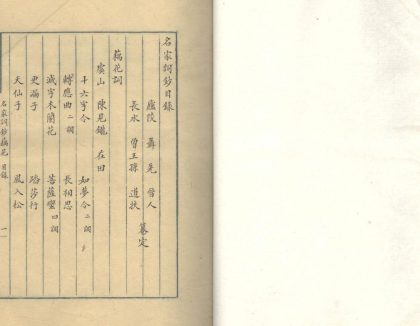 名家詞鈔目錄
廬陵 聶先 晉人
長水 曾王孫 道扶
纂定
藕花詞
虞山 陳見鑨 在田
十六字令 如夢令二調
轉應曲二調 長相思
減字木蘭花 菩薩蠻四調
更漏子 踏莎行
天仙子 風入松
名家詞鈔藕花 目錄 一